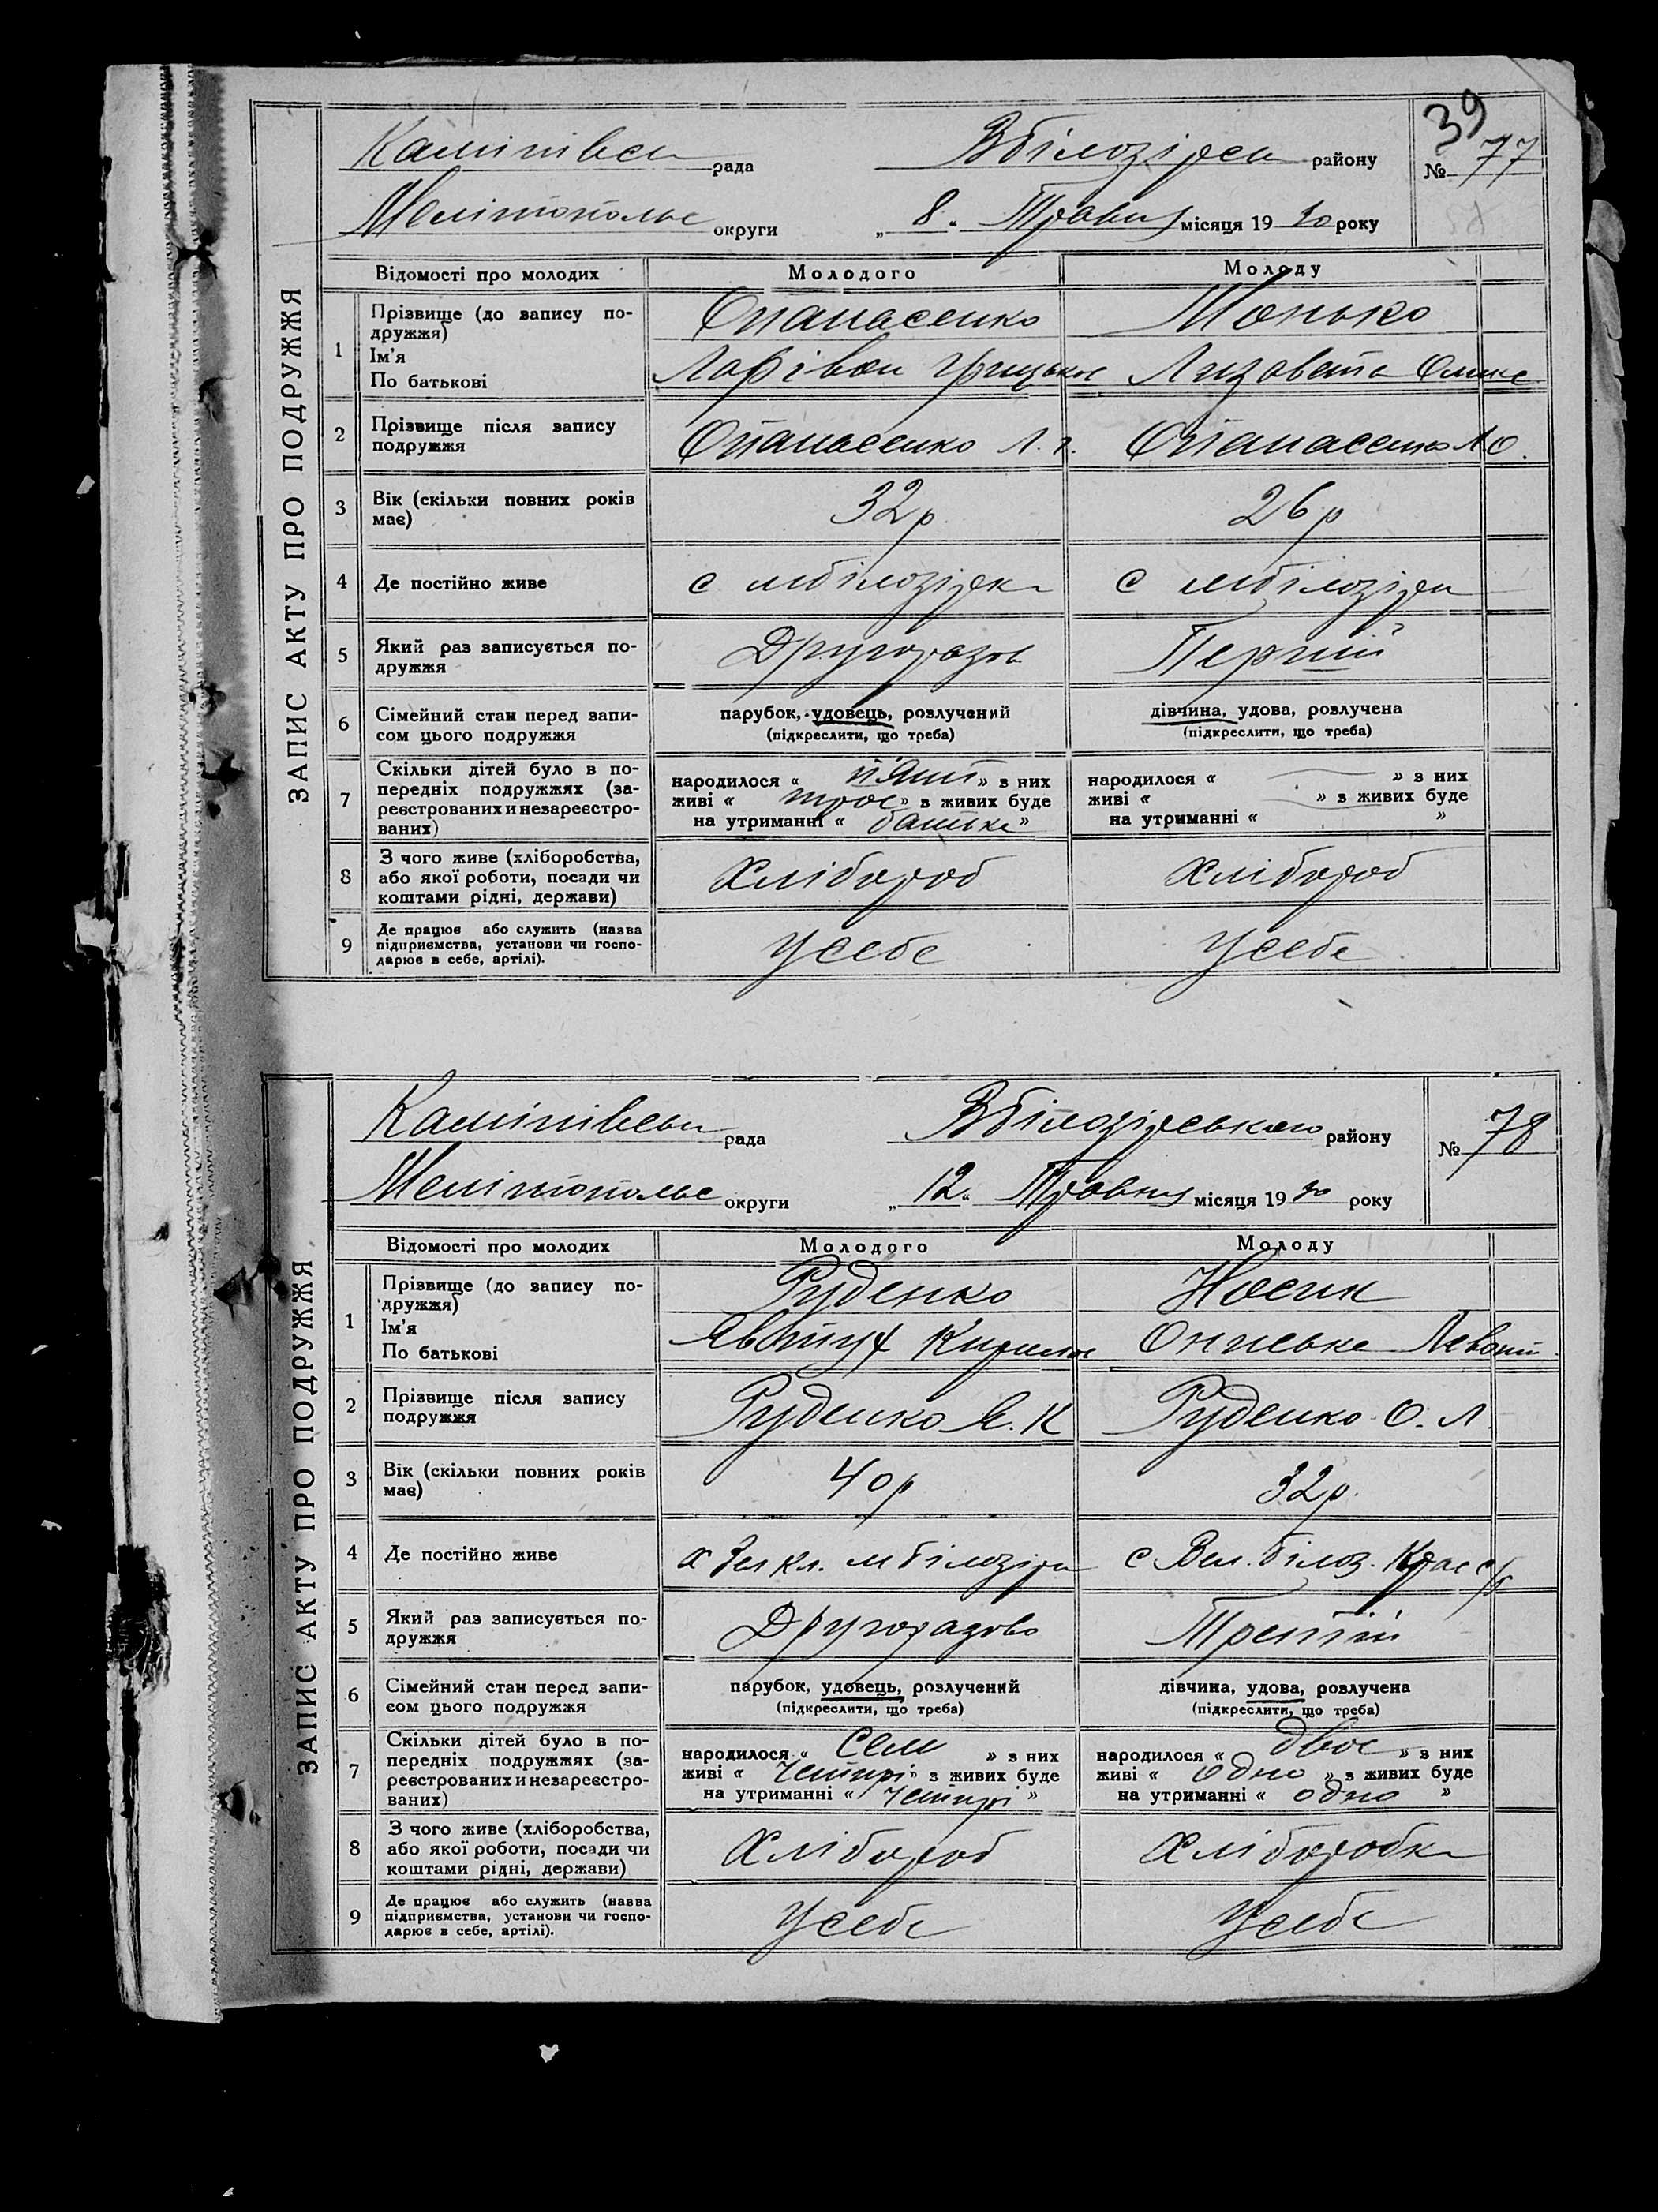 39
рада Вбілозірськ району № 77
Мелітопольс округи „ 8 “ Травня місяця 19 30 року
ЗАПИС АКТУ ПРО ПОДРУЖЖЯ
Відомості про молодих Молодого Молоду
1 Прізвище (до запису по-
дружжя) Опанасенко Монько
Ім'я
По батькові Грицьков Лизавета
2 Прізвище після запису
подружжя Опанасенко Л. Г. Опанасенко Л О.
3 Вік (скільки повних років
має) 32 р. 26 р
4 Де постійно живе с мбілозірка с мбілозірка
5 Який раз записується по-
дружжя Другоразов Перший
6 Сімейний стан перед запи-
сом цього подружжя
парубок, удовець, розлучений
(підкреслити, що треба)
дівчина, удова, розлучена
(підкреслити, що треба)
7 Скільки дітей було в по-
передніх подружжях (за-
реєстрованих и незареєстро-
ваних)
народилося « пять » з них
живі « троє » з живих буде
на утриманні « батька »
народилося « — » з них
живі « — » з живих буде
на утриманні « »
8 З чого живе (хліборобства,
або якої роботи, посади чи
коштами рідні, держави) Хлібороб Хлібороб
9 Де працює або служить (назва
підприємства, установи чи госпо-
дарює в себе, артілі). У себе У себе
рада Вбілозірського району № 78
Мелітопольс округи „ 12 “ Травня місяця 19 30 року
ЗАПИС АКТУ ПРО ПОДРУЖЖЯ
Відомості про молодих Молодого Молоду
1 Прізвище (до запису по-
дружжя) Руденко Носик
Ім'я
По батькові Явтух Кирилов Ониська
2 Прізвище після запису
подружжя Руденко Я. К Руденко О. Л
3 Вік (скільки повних років
має) 40 р 32 р.
4 Де постійно живе мбілозірка с Вел. білоз.
5 Який раз записується по-
дружжя Другоразово Третій
6 Сімейний стан перед запи-
сом цього подружжя
парубок, удовець, розлучений
(підкреслити, що треба)
дівчина, удова, розлучена
(підкреслити, що треба)
7 Скільки дітей було в по-
передніх подружжях (за-
реєстрованих и незареєстро-
ваних)
народилося « Сем » з них
живі « Четирі » з живих буде
на утриманні « Четирі »
народилося « двоє » з них
живі « одно » з живих буде
на утриманні « одно »
8 З чого живе (хліборобства,
або якої роботи, посади чи
коштами рідні, держави) Хлібороб Хліборобка
9 Де працює або служить (назва
підприємства, установи чи госпо-
дарює в себе, артілі). У себе У себе